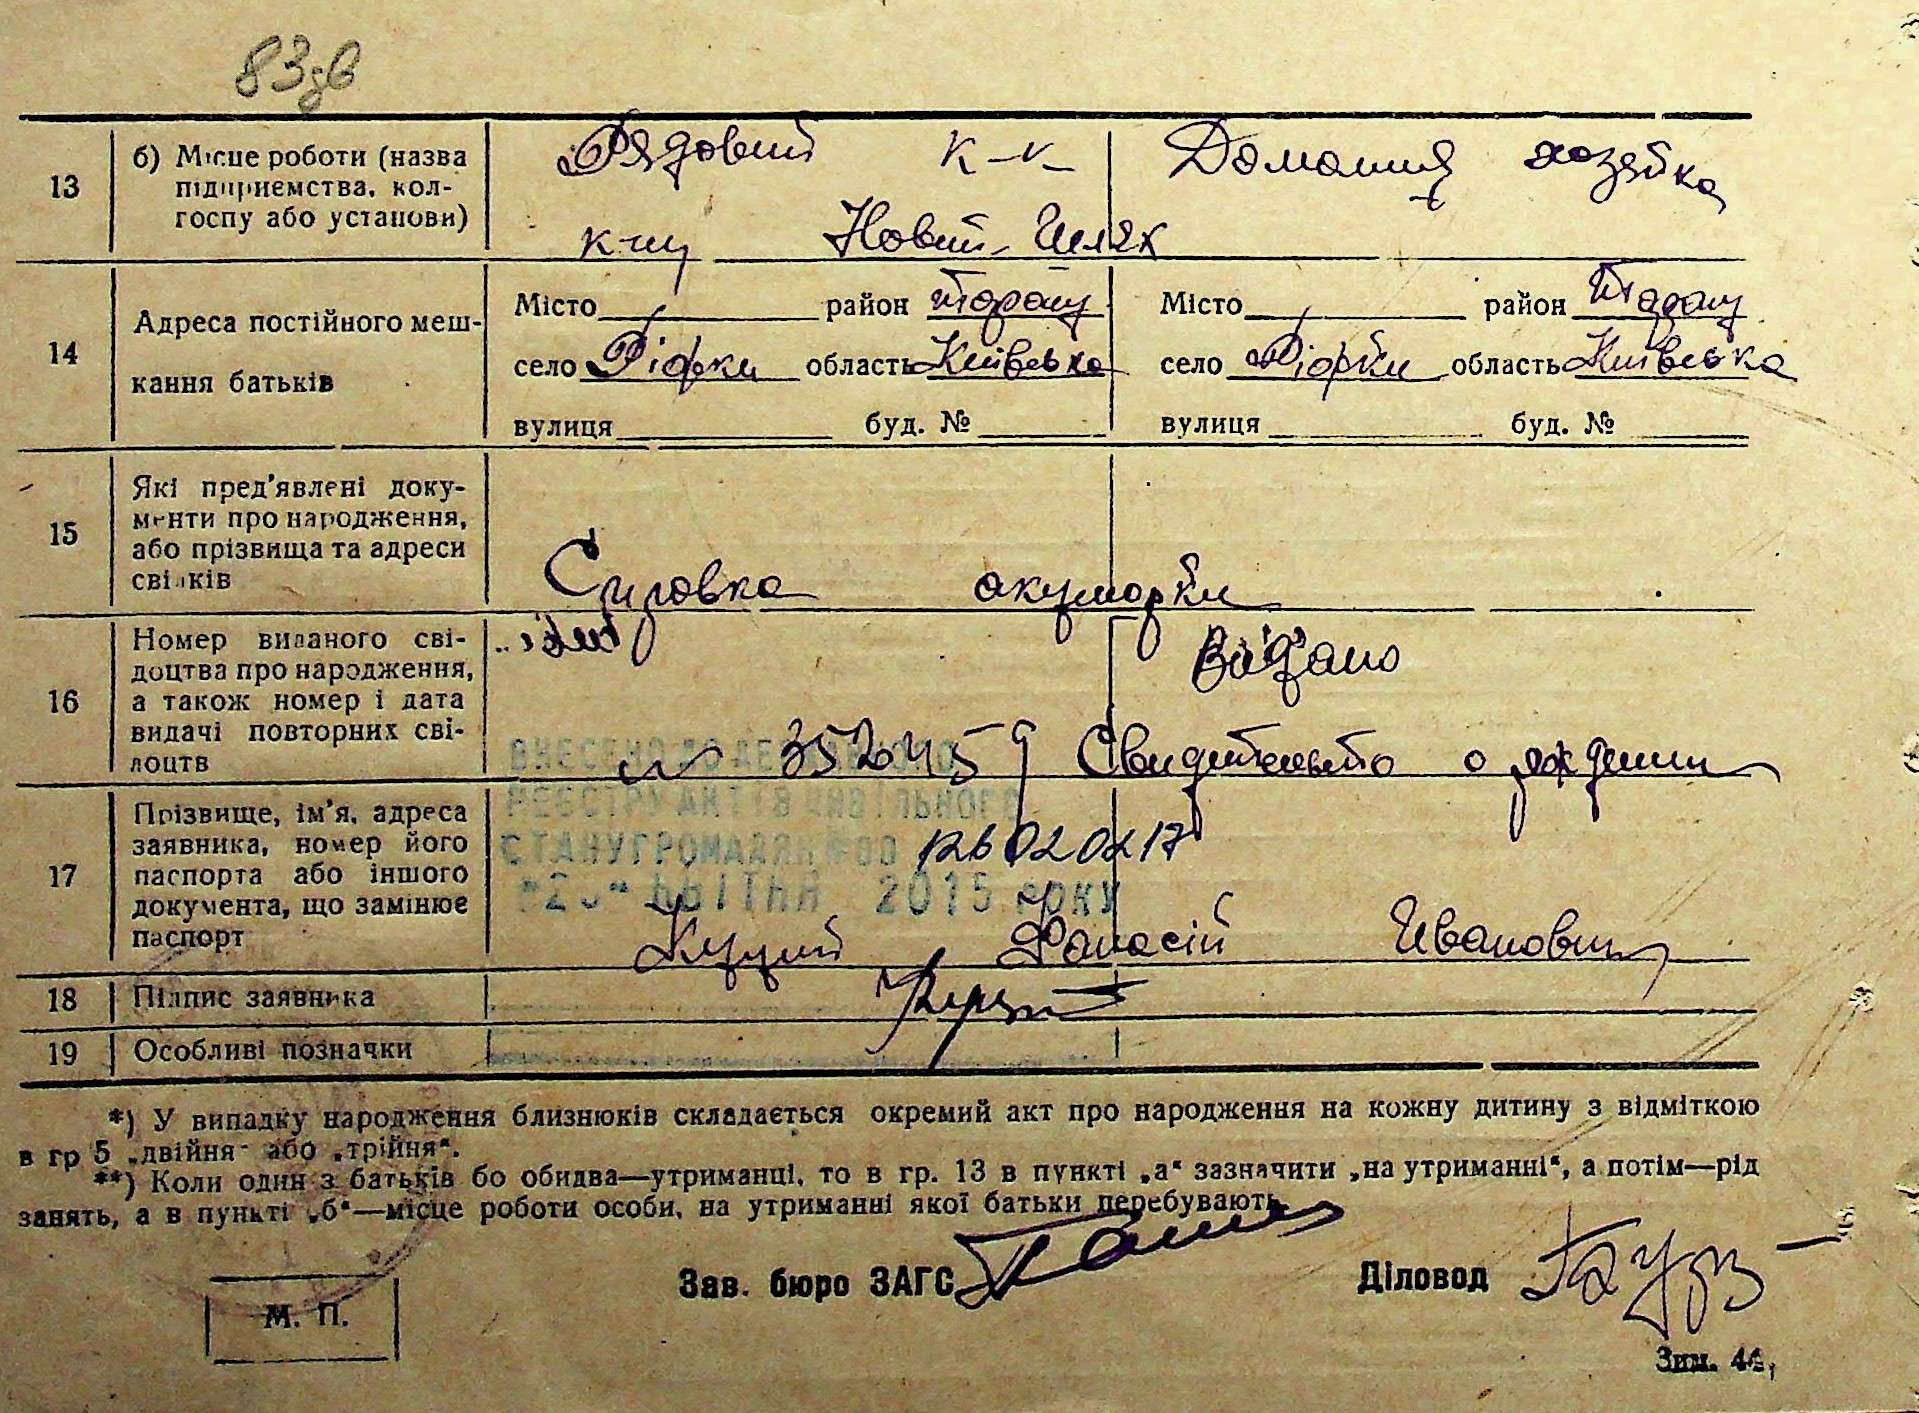 83зв
13 б) Місце роботи (назва Рядовий к-к Домашня хозяйка
підприємства, кол-
госпу або установи) Новий-Шлях
14 Адреса постійного меш- Місто район Таращ Місто район Таращ
кання батьків село область Київська село область Київська
вулиця буд. № вулиця буд. №
15 Які пред'явлені доку-
менти про народження,
або прізвища та адреси
свідків Справка акушорки
16 Номер виданого сві- Відано
доцтва про народження,
а також номер і дата
видачі повторних сві- № Свидительство о рождении
доцтв
ВНЕСЕНО ДО ДЕРЖАВНОГО
РЕЄСТРУ АКТІВ ЦИВІЛЬНОГО
СТАНУ ГРОМАДЯН
КВІТНЯ 2015 РОКУ
17 Прізвище, ім'я, адреса
заявника, номер його
паспорта або іншого
документа, що замінює
паспорт Куций Фанасій Иванович
18 Підпис заявника
19 Особливі позначки
*) У випадку народження близнюків складається окремий акт про народження на кожну дитину з відміткою
в гр 5 „двійня" або „трійня".
**) Коли один з батьків бо обидва—утриманці, то в гр. 13 в пункті „а" зазначити „на утриманні", а потім—рід
занять, а в пункті „б"—місце роботи особи, на утриманні якої батьки перебувають.
Зав. бюро ЗАГС Діловод
М. П.
Зим. 44,